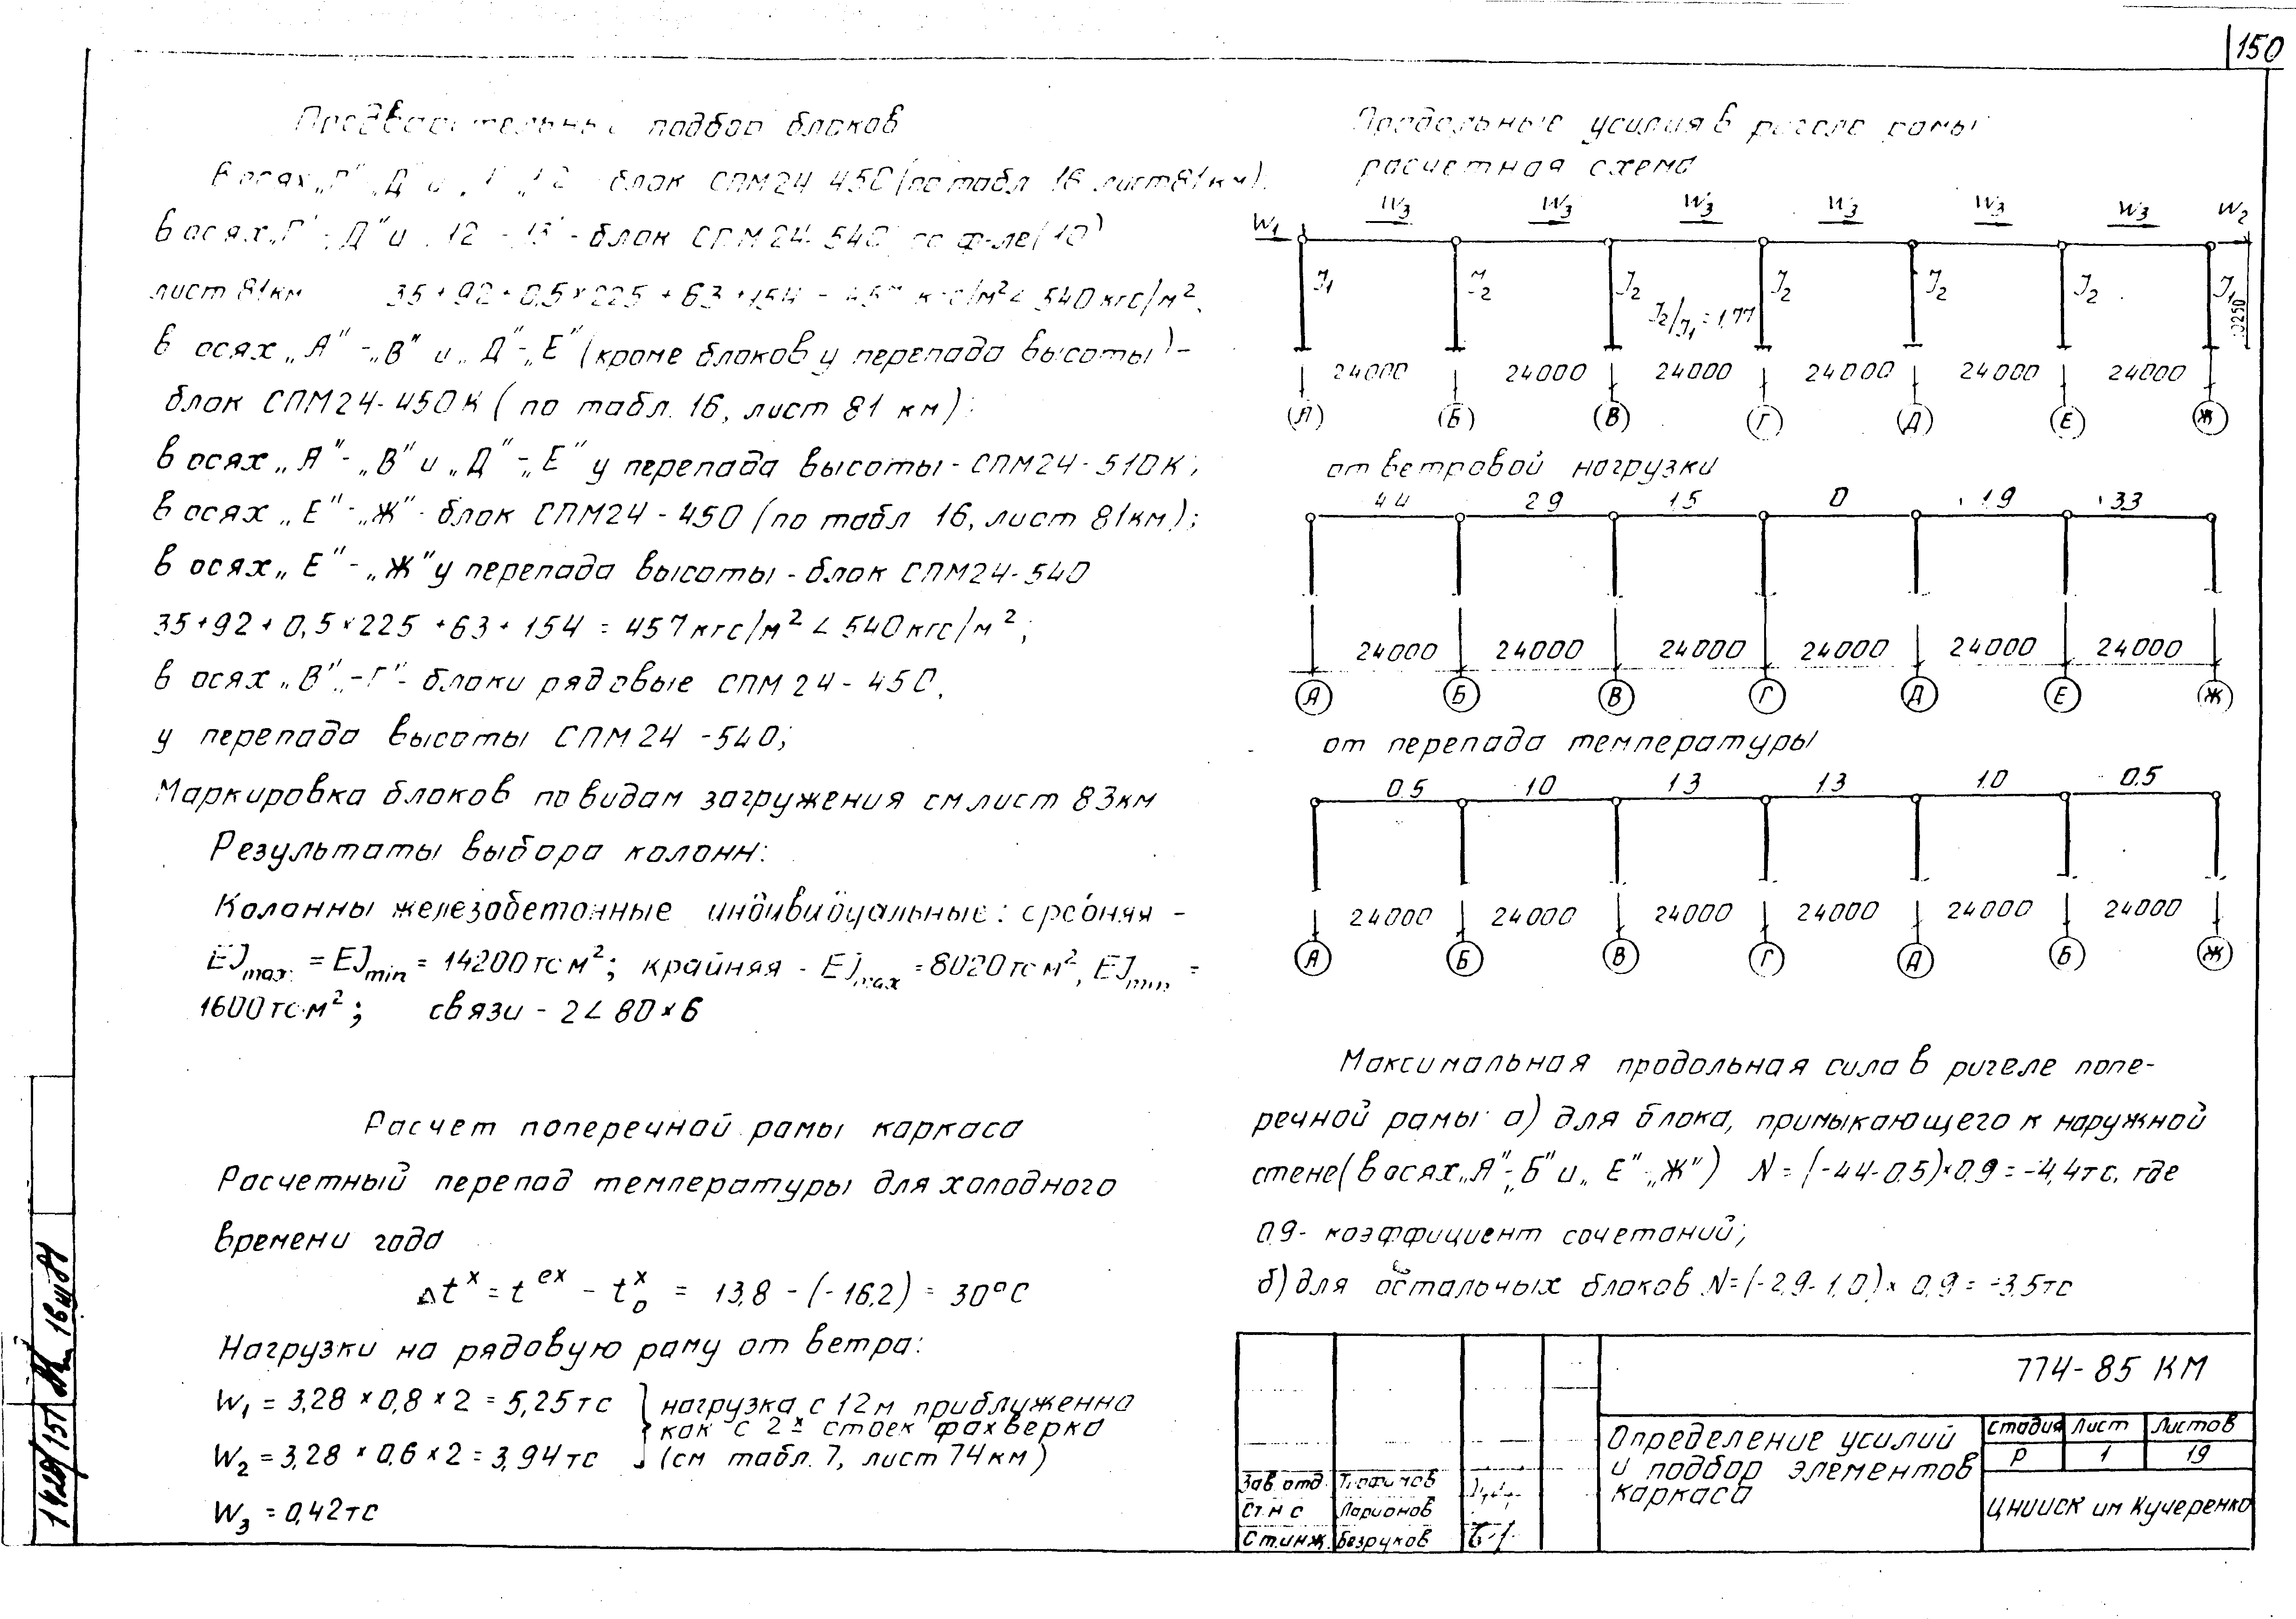 150
подбор блоков
блок СПМ24-450 (по табл 16 лист 81 км).
в осях „Г"-„Д" и „12-13" - блок СПМ24-540 по ф-ле (10)
лист 81 км 35+92+0,5×225+63+154 = 457 кгс/м² < 540 кгс/м².
в осях „А"-„В" и „Д"-„Е" (кроме блоков у перепада высоты) -
блок СПМ24-450К (по табл. 16, лист 81 км);
в осях „А"-„В" и „Д"-„Е" у перепада высоты - СПМ24-510К;
в осях „Е"-„Ж" - блок СПМ24-450 (по табл 16, лист 81 км);
в осях „Е"-„Ж" у перепада высоты - блок СПМ24-540
35+92+0,5×225+63+154 = 457 кгс/м² < 540 кгс/м²;
в осях „В"-„Г" - блоки рядовые СПМ24-450,
у перепада высоты СПМ24-540;
Маркировка блоков по видам загружения см лист 83 км
Результаты выбора колонн:
Колонны железобетонные индивидуальные: средняя -
EJmax = EJmin = 14200 тс м²; крайняя - EJmax = 8020 тс м², EJmin =
1600 тс·м²; связи - 2∠80×6
Расчет поперечной рамы каркаса
Расчетный перепад температуры для холодного
времени года
Δtˣ = tᵉˣ - t₀ˣ = 13,8 - (-16,2) = 30°С
Нагрузки на рядовую раму от ветра:
W₁ = 3,28 × 0,8 × 2 = 5,25 тс } нагрузка с 12 м приближенно
как с 2х стоек фахверка
W₂ = 3,28 × 0,6 × 2 = 3,94 тс (см табл. 7, лист 74 км)
W₃ = 0,42 тс
Продольные усилия в ригеле рамы
расчетная схема
W₁ W₃ W₃ W₃ W₃ W₃ W₃ W₂
J₁ J₂ J₂ J₂ J₂ J₂ J₁
J₂/J₁ = 1,77
24000 24000 24000 24000 24000 24000
(А) (Б) (В) (Г) (Д) (Е) (Ж)
от ветровой нагрузки
4.4 2.9 1.5 0 1.9 3.3
24000 24000 24000 24000 24000 24000
А Б В Г Д Е Ж
от перепада температуры
0.5 1.0 1.3 1.3 1.0 0.5
24000 24000 24000 24000 24000 24000
А Б В Г Д Б Ж
Максимальная продольная сила в ригеле попе-
речной рамы: а) для блока, примыкающего к наружной
стене (в осях „А"-„Б" и „Е"-„Ж") N = (-4.4-0.5)×0.9 = -4,4 тс, где
0.9 - коэффициент сочетаний;
б) для остальных блоков N = (-2.9-1.0)× 0,9 = -3,5 тс
774-85 КМ
Определение усилий
и подбор элементов
каркаса
Стадия Лист Листов
Р 1 19
ЦНИИСК им Кучеренко
Зав. отд.
Ст. н с Ларионов
Ст. инж. Безруков